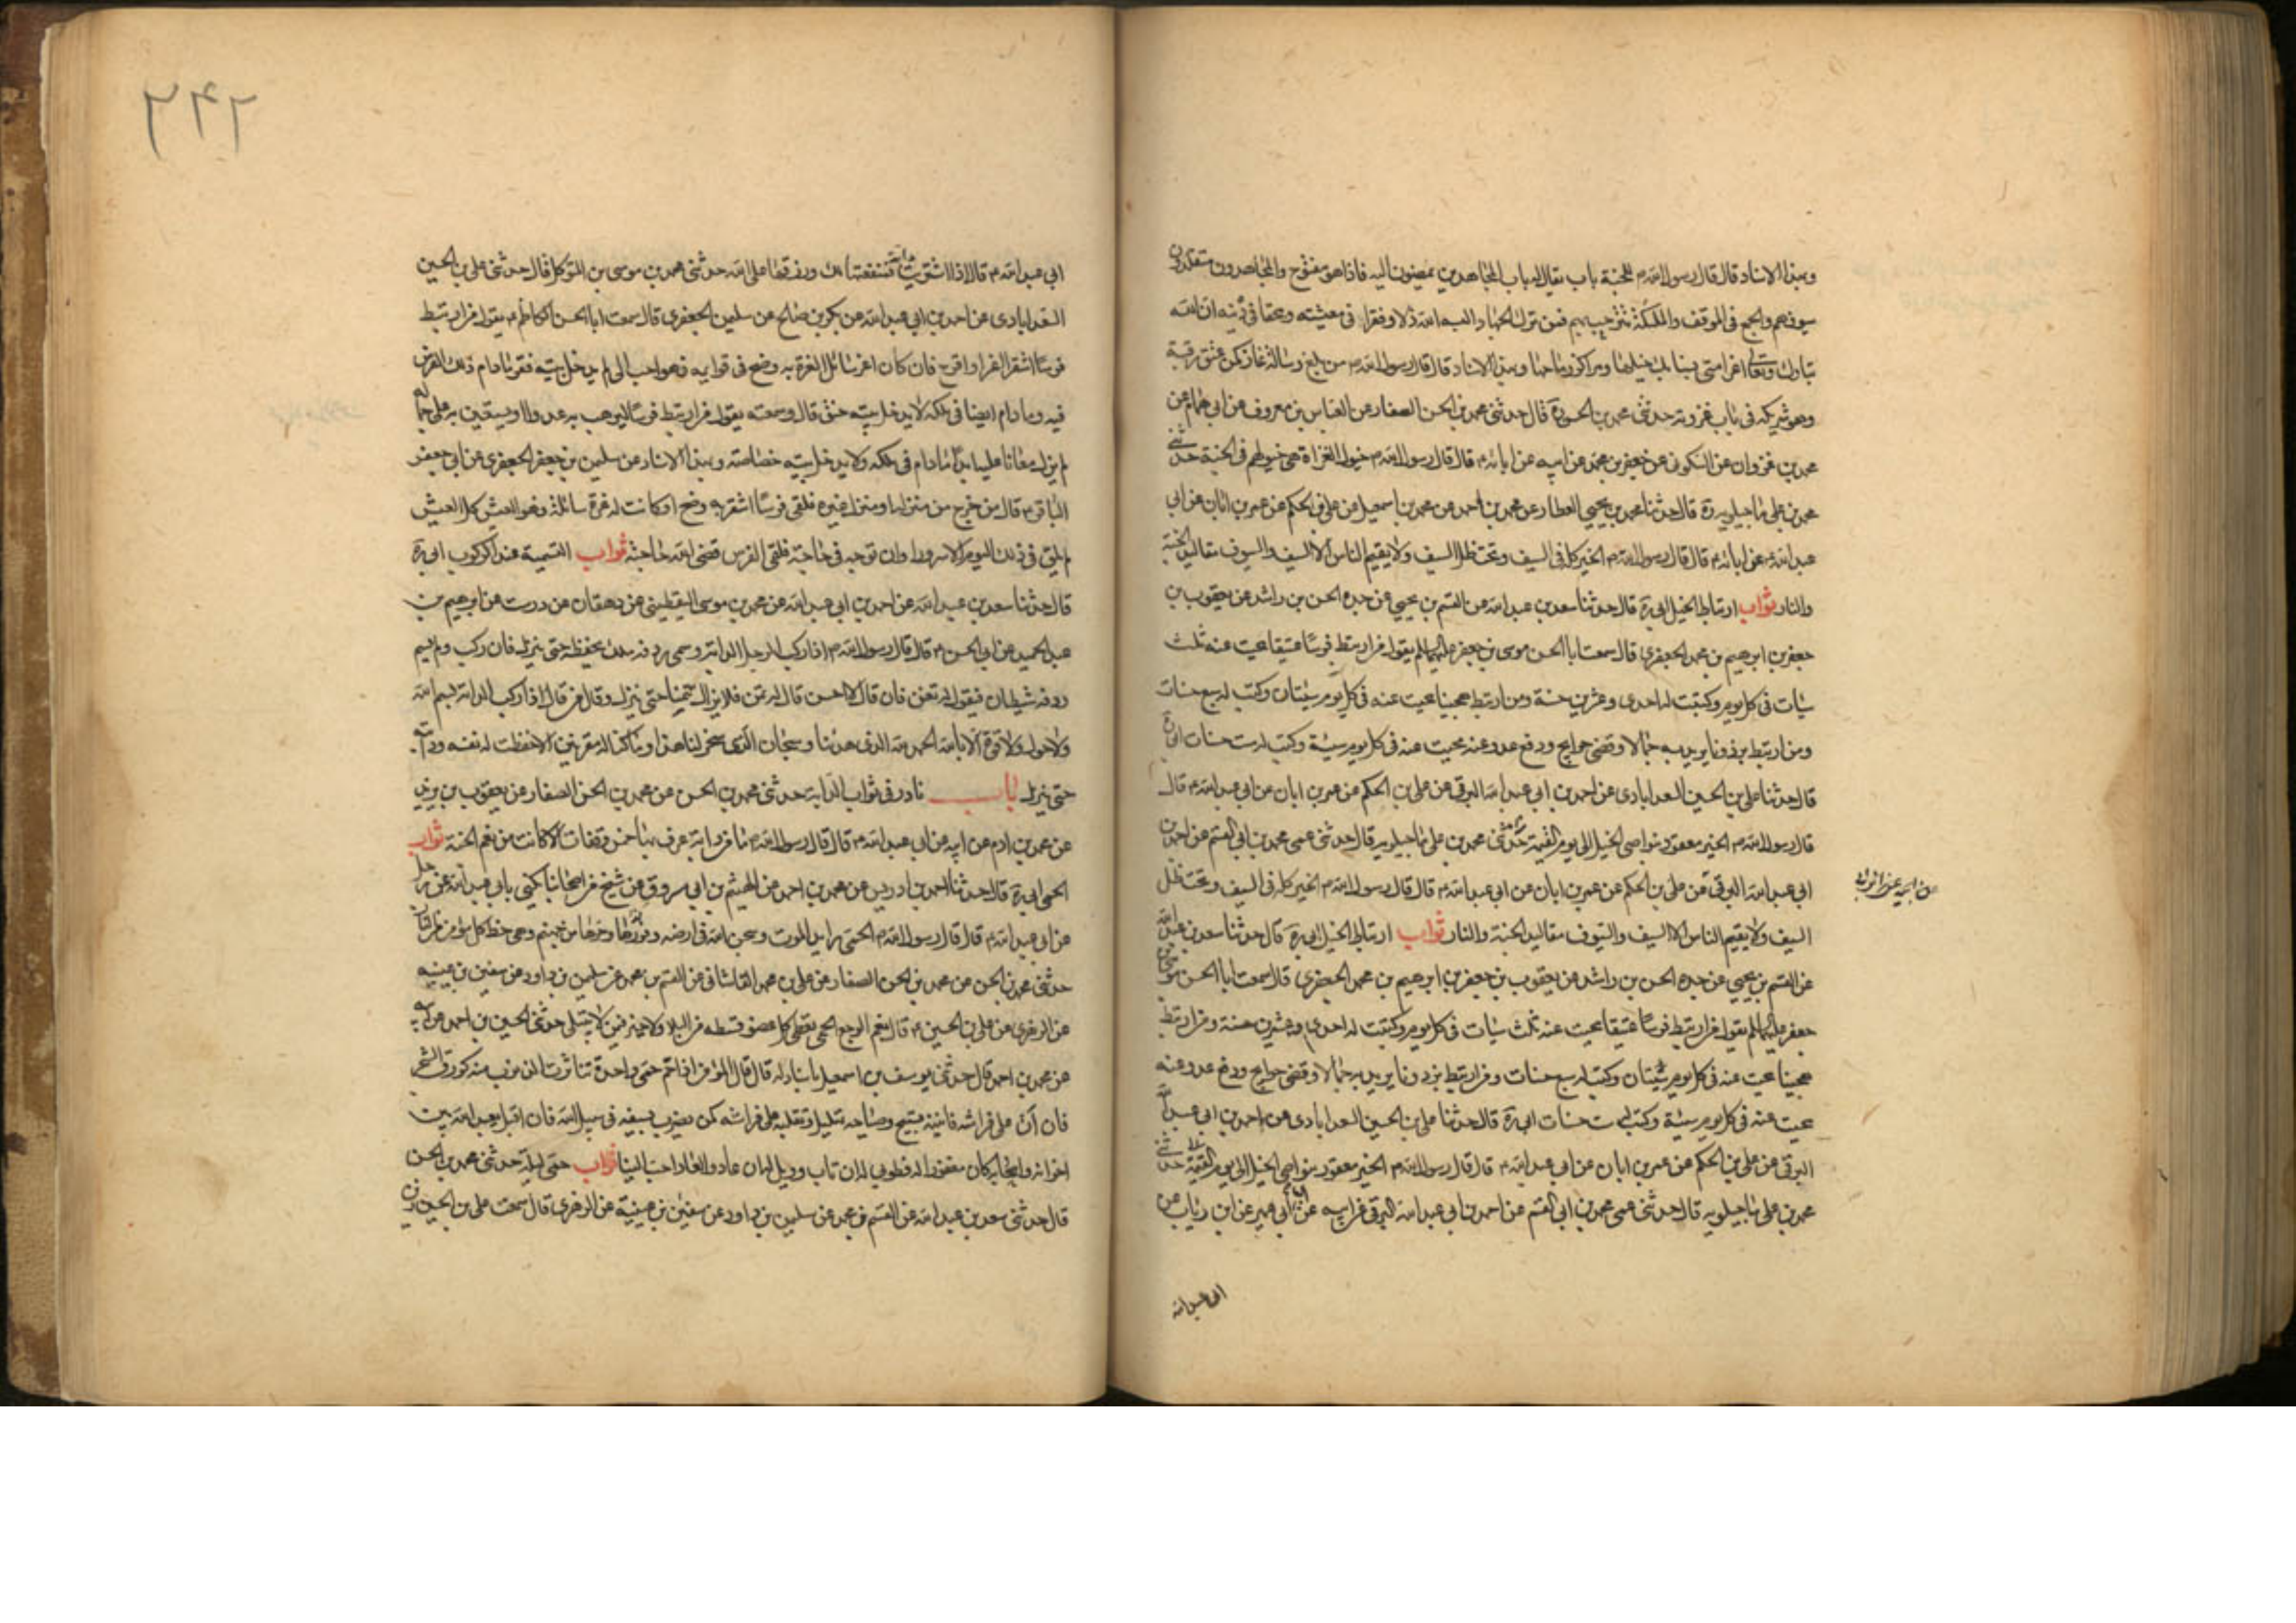 وبهذا الاسناد قال قال رسول الله ص للجنة باب يقال له باب المجاهدين يمضون اليه فاذا هو مفتوح والمجاهدون متقلدون
سيوفهم والجمع في الموقف والملئكة تترحب بهم فمن ترك الجهاد البسه الله ذلا وفقرا في معيشته ومحقا في دينه ان الله
تبارك وتعالى اعز امتي بسنابك خيلها ومراكز رماحها وبهذا الاسناد قال قال رسول الله ص من بلغ رسالة غاز كمن عتق رقبة
وهو شريكه في باب غزوته حدثني محمد بن الحسن ره قال حدثني محمد بن الحسن الصفار عن العباس بن معروف عن ابي همام عن
محمد بن غزوان عن السكوني عن جعفر بن محمد عن ابيه عن ابائه ع قال قال رسول الله ص خيول الغزاة هي خيولهم في الجنة حدثني
محمد بن علي ماجيلويه ره قال حدثنا محمد بن يحيى العطار عن محمد بن احمد عن محمد بن اسمعيل عن علي بن الحكم عن عمر بن ابان عن ابي
عبد الله ع عن ابائه ع قال قال رسول الله ص الخير كله في السيف وتحت ظل السيف ولا يقيم الناس الا السيف والسيوف مقاليد الجنة
والنار ثواب ارتباط الخيل ابي ره قال حدثنا سعد بن عبد الله عن القسم بن يحيى عن جده الحسن بن راشد عن يعقوب بن
جعفر بن ابرهيم بن محمد الجعفري قال سمعت ابا الحسن موسى بن جعفر عليهما السلم يقول من ارتبط فرسا عتيقا محيت عنه ثلث
سيئات في كل يوم وكتبت له احدى وعشرين حسنة ومن ارتبط هجينا محيت عنه في كل يوم سيئتان وكتب له سبع حسنات
ومن ارتبط برذونا يريد به جمالا وقضى حوايج ودفع عدو عنه محيت عنه في كل يوم سيئة وكتب له ست حسنات ابي ره
قال حدثنا علي بن الحسين السعدابادي عن احمد بن ابي عبد الله البرقي عن علي بن الحكم عن عمر بن ابان عن ابي عبد الله ع قال
قال رسول الله ص الخير معقود بنواصي الخيل الى يوم القيمة حدثني محمد بن علي ماجيلويه قال حدثني عمي محمد بن ابي القسم عن احمد بن
ابي عبد الله البرقي عن علي بن الحكم عن عمر بن ابان عن ابي عبد الله ع قال قال رسول الله ص الخير كله في السيف وتحت ظل
السيف ولا يقيم الناس الا السيف والسيوف مقاليد الجنة والنار ثواب ارتباط الخيل ابي ره قال حدثنا سعد بن عبد الله
عن القسم بن يحيى عن جده الحسن بن راشد عن يعقوب بن جعفر بن ابرهيم بن محمد الجعفري قال سمعت ابا الحسن موسى بن
جعفر عليهما السلم يقول من ارتبط فرسا عتيقا محيت عنه ثلث سيئات في كل يوم وكتبت له احدى وعشرين حسنة ومن ارتبط
هجينا محيت عنه في كل يوم سيئتان وكتب له سبع حسنات ومن ارتبط برذونا يريد به جمالا وقضى حوايج ودفع عدو عنه
محيت عنه في كل يوم سيئة وكتب له ست حسنات ابي ره قال حدثنا علي بن الحسين السعدابادي عن احمد بن ابي عبد الله
البرقي عن علي بن الحكم عن عمر بن ابان عن ابي عبد الله ع قال قال رسول الله ص الخير معقود بنواصي الخيل الى يوم القيمة حدثني
محمد بن علي ماجيلويه قال حدثني عمي محمد بن ابي القسم عن احمد بن ابي عبد الله البرقي عن ابيه عن ابن ابي عمير عن ابن رئاب عن
ابي عبد الله
٢٤٢
ابي عبد الله ع قال اذا اشتريت دابة فمنفعتها لك ورزقها على الله حدثني محمد بن موسى بن المتوكل قال حدثني علي بن الحسين
السعدابادي عن احمد بن ابي عبد الله عن بكر بن صالح عن سليمن الجعفري قال سمعت ابا الحسن الكاظم ع يقول من ارتبط
فرسا اشقر اغر او اقرح فان كان اغر سائل الغرة به وضح في قوايمه فهو احب الي لم يدخل بيته فقر ما دام ذلك الفرس
فيه وما دام ايضا في ملكه لا يدخل بيته حنق قال وسمعته يقول من ارتبط فرسا ليرهب به عدوا او يستعين به على جماله
لم يزل معانا عليه ابدا ما دام في ملكه ولا يدخل بيته خصاصة وبهذا الاسناد عن سليمن بن جعفر الجعفري عن ابي جعفر
الباقر ع قال من خرج من منزله او منزل غيره فلقي فرسا اشقر به وضح او كانت له غرة سائلة فهو العيش كل العيش
لم يلق في ذلك اليوم الا سرورا وان توجه في حاجة فلقي الفرس قضى الله حاجته ثواب التسمية عند الركوب ابي ره
قال حدثنا سعد بن عبد الله عن احمد بن ابي عبد الله عن محمد بن موسى اليقطيني عن دهقان عن درست عن ابرهيم بن
عبد الحميد عن ابي الحسن ع قال قال رسول الله ص اذا ركب الرجل الدابة وسمى ردفه ملك يحفظه حتى ينزل فان ركب ولم يسم
ردفه شيطان فيقول له تغن فان قال لا احسن قال له تمن فلا يزال يتمنى حتى ينزل وقال من قال اذا ركب الدابة بسم الله
ولا حول ولا قوة الا بالله الحمد لله الذي هدانا وسبحان الذي سخر لنا هذا وما كنا له مقرنين الا حفظت له نفسه ودابته
حتى ينزل باب نادر في ثواب الدابة حدثني محمد بن الحسن عن محمد بن الحسن الصفار عن يعقوب بن يزيد
عن محمد بن ادم عن ابيه عن ابي عبد الله ع قال قال رسول الله ص ما من دابة عرف بها خمس وقفات الا كانت من نعم الجنة ثواب
الحمى ابي ره قال حدثنا احمد بن ادريس عن محمد بن احمد عن الهيثم بن ابي مسروق عن شيخ من اصحابنا يكنى بابي عبد الله عن رجل
عن ابي عبد الله ع قال قال رسول الله ص الحمى رايد الموت وسجن الله في ارضه وفورها وحرها من جهنم وهي حظ كل مؤمن من النار
حدثني محمد بن الحسن عن محمد بن الحسن الصفار عن علي بن محمد القاشاني عن القسم بن محمد عن سليمن بن داود عن سفين بن عيينه
عن الزهري عن علي بن الحسين ع قال نعم الوجع الحمى تعطي كل عضو قسطه من البلاء ولا خير فيمن لا يبتلى حدثني الحسين بن احمد عن ابيه
عن محمد بن احمد قال حدثني يوسف بن اسمعيل باسناد له قال قال المؤمن اذا حم حمى واحدة تناثرت الذنوب منه كورق الشجر
فان ان على فراشه فانينه تسبيح وصياحه تهليل وتقلبه على فراشه كمن يضرب بسيفه في سبيل الله فان اقبل يعبد الله بين
اخوانه واصحابه كان مغفورا له فطوبى له ان تاب وويل له ان عاد والعافاة احب الينا ثواب حمى ليلة حدثني محمد بن الحسن
قال حدثني سعد بن عبد الله عن القسم بن محمد عن سليمن بن داود عن سفين بن عيينة عن الزهري قال سمعت علي بن الحسين زين